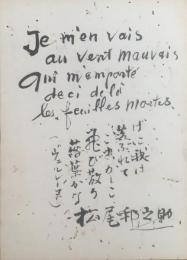 Je m'en vais
au vent mauvais
qui m'emporte
deci delà
les feuilles mortes
げに我は
落ふれて
ここかしこ
飛び散る
落葉かな
(ヴェルレーヌ)
松尾邦之助